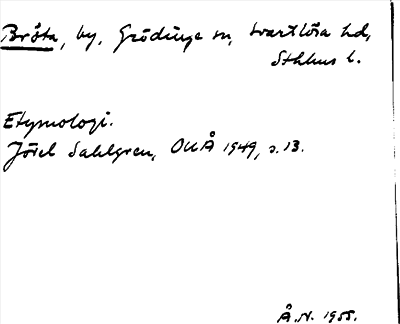 Bråta, by, Grödinge sn, Svartlösa hd,
Sthlms l.
Etymologi.
Jöran Sahlgren, OUÅ 1949, s. 13.
Å.N. 1955.